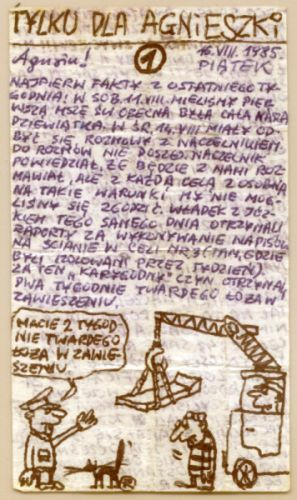 TYLKO DLA AGNIESZKI
Agusiu!
1
16.VIII.1985
PIĄTEK
NAJPIERW FAKTY Z OSTATNIEGO TY-
GODNIA! W SOB. 11.VIII. MIELIŚMY PIER
WSZĄ MSZĘ ŚW OBECNA BYŁA CAŁA NASZA
DZIEWIĄTKA. W ŚR. 14.VIII MIAŁY OD-
BYĆ SIĘ ROZMOWY Z NACZELNIKIEM.
DO ROZMÓW NIE DOSZŁO. NACZELNIK
POWIEDZIAŁ, ŻE BĘDZIE Z NAMI ROZ-
MAWIAŁ, ALE Z KAŻDĄ CELĄ Z OSOBNA
NA TAKIE WARUNKI MY NIE MOG-
LIŚMY SIĘ ZGODZIĆ. WŁADEK Z JÓZ-
KIEM TEGO SAMEGO DNIA OTRZYMALI
RAPORTY ZA WYKONYWANIE NAPISÓW
NA ŚCIANIE W CELI NR 3 GDZIE
BYLI IZOLOWANI PRZEZ TYDZIEŃ).
ZA TEN „KARYGODNY" CZYN OTRZYMALI
DWA TYGODNIE TWARDEGO ŁOŻA W
ZAWIESZENIU.
MACIE 2 TYGOD
NIE TWARDEGO
ŁOŻA W ZAWIE-
SZENIU